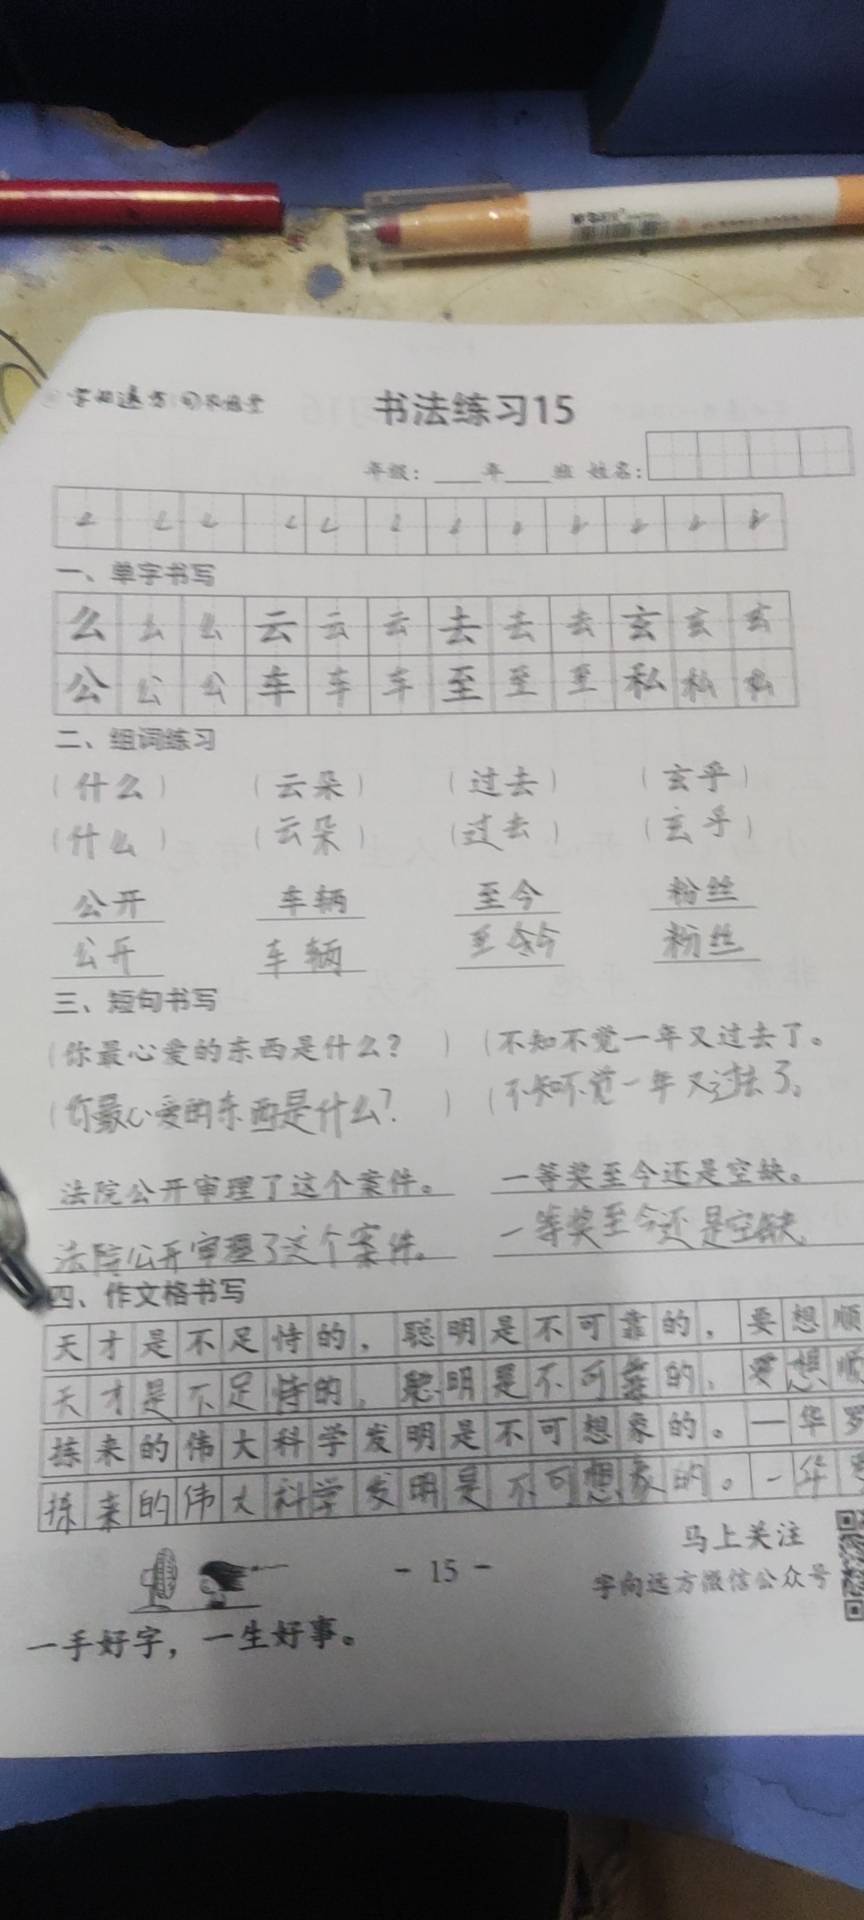 书法练习15
年级：____年____班 姓名：
一、单字书写
么 么 么 云 云 云 去 去 去 玄 玄 玄
公 公 公 车 车 车 至 至 至 私 私 私
二、组词练习
（什么） （云朵） （过去） （玄乎）
（什么） （云朵） （过去） （玄乎）
公开 车辆 至今 粉丝
公开 车辆 至 今 粉丝
三、短句书写
（你最心爱的东西是什么？ ）（不知不觉一年又过去了。
（你最心爱的东西是什么？ ）（不知不觉一年又过去了。
法院公开审理了这个案件。 一等奖至今还是空缺。
法院公开审理了这个案件。 一等奖至今还是空缺
四、作文格书写
天才是不足恃的，聪明是不可靠的，要想顺
天才是不足恃的，聪明是不可靠的，要想顺
拣来的伟大科学发明是不可想象的。一华罗
拣来的伟大科学发明是不可想象的。一华
马上关注
- 15 -
字向远方微信公众号
一手好字，一生好事。